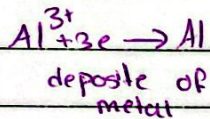 Al³⁺ +3e → Al
deposite of
metal